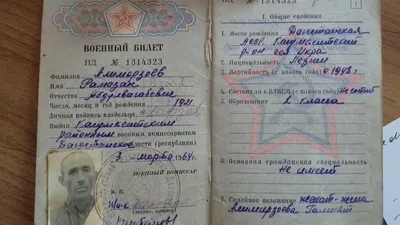 ВОЕННЫЙ БИЛЕТ
НД № 1314323
Фамилия
Имя Рамазан
Отчество
Число, месяц и год рождения 1921
Личная подпись владельца
Выдан Касумкентским
районным военным комиссариатом
Дагестанской
области (республики)
3 марта 1964 г.
ВОЕННЫЙ КОМИССАР
М. П.
НД № 1314323
I. Общие сведения
1. Место рождения Дагестанская
АССР Касумкентский
р-он сел. Икра
2. Национальность Лезгин
3. Партийность (с какого года) с 1948 г.
4. Состоял ли в ВЛКСМ (с какого года) Не состоял
5. Образование 2 класса
6. Основная гражданская специальность
Не имеет
7. Семейное положение женат - жена